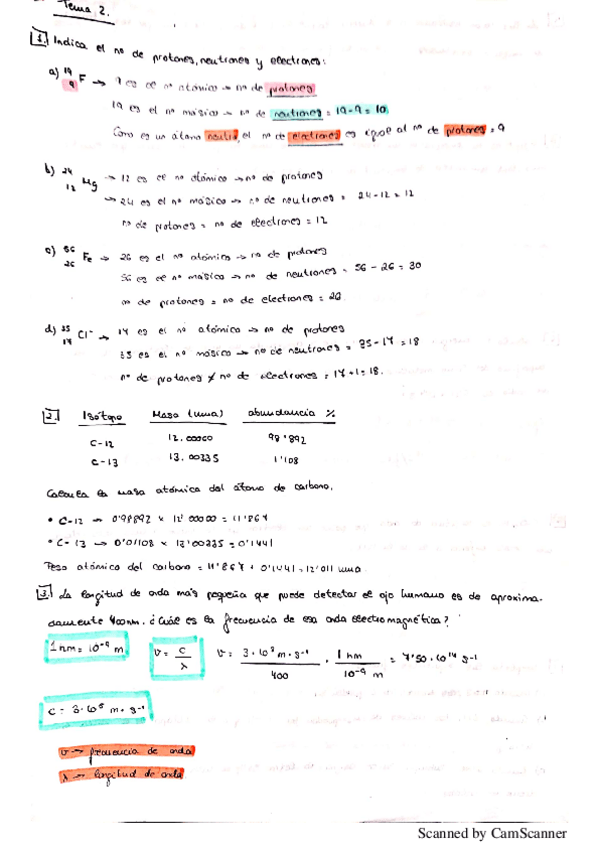 Tema 2.
1. Indica el nº de protones, neutrones y electrones:
a) 19 9 F → 9 es el nº atómico → nº de protones
19 es el nº másico → nº de neutrones = 19-9 = 10
Como es un átomo neutro, el nº de electrones es igual al nº de protones = 9
b) 24 12 Mg → 12 es el nº atómico → nº de protones
→ 24 es el nº másico → nº de neutrones = 24-12 = 12
nº de protones = nº de electrones = 12
c) 56 26 Fe → 26 es el nº atómico → nº de protones
56 es el nº másico → nº de neutrones = 56-26 = 30
nº de protones = nº de electrones = 26.
d) 35 17 Cl⁻ → 17 es el nº atómico → nº de protones
35 es el nº másico → nº de neutrones = 35-17 = 18
nº de protones ≠ nº de electrones = 17+1 = 18.
2. Isótopo Masa (uma) abundancia %
C-12 12.00000 98'892
C-13 13.00335 1'108
Calcula la masa atómica del átomo de carbono.
• C-12 → 0'98892 x 12'00000 = 11'867
• C-13 → 0'01108 x 13'00335 = 0'1441
Peso atómico del carbono = 11'867 + 0'1441 = 12'011 uma.
3. La longitud de onda más pequeña que puede detectar el ojo humano es de aproxima-
damente 400nm. ¿Cuál es la frecuencia de esa onda electromagnética?
1 nm = 10⁻⁹ m υ = c/λ υ = 3·10⁸ m·s⁻¹/400 · 1 nm/10⁻⁹ m = 7'50·10¹⁴ s⁻¹
c = 3·10⁸ m·s⁻¹
υ → frecuencia de onda
λ → longitud de onda
Scanned by CamScanner